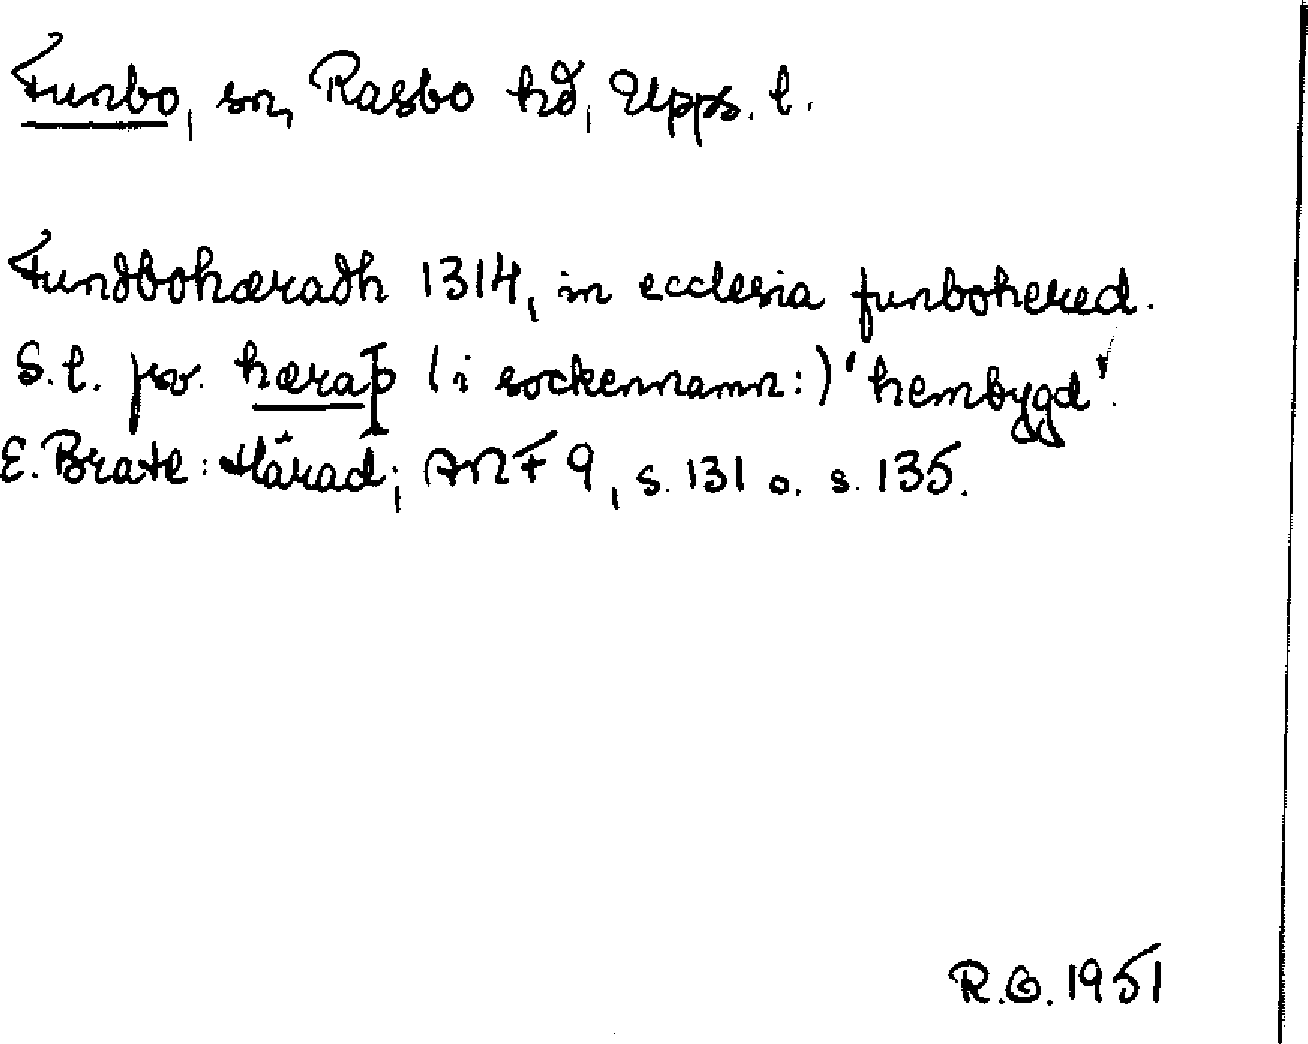 Funbo, sn, Rasbo hd, Upps. l.
Fundbohæradh 1314, in ecclesia funbohered.
S. l. fsv. hæraþ (i sockennamn:) 'hembygd'.
E. Brate: Härad; ANF 9, s. 131 o. s. 135.
R.O. 1951